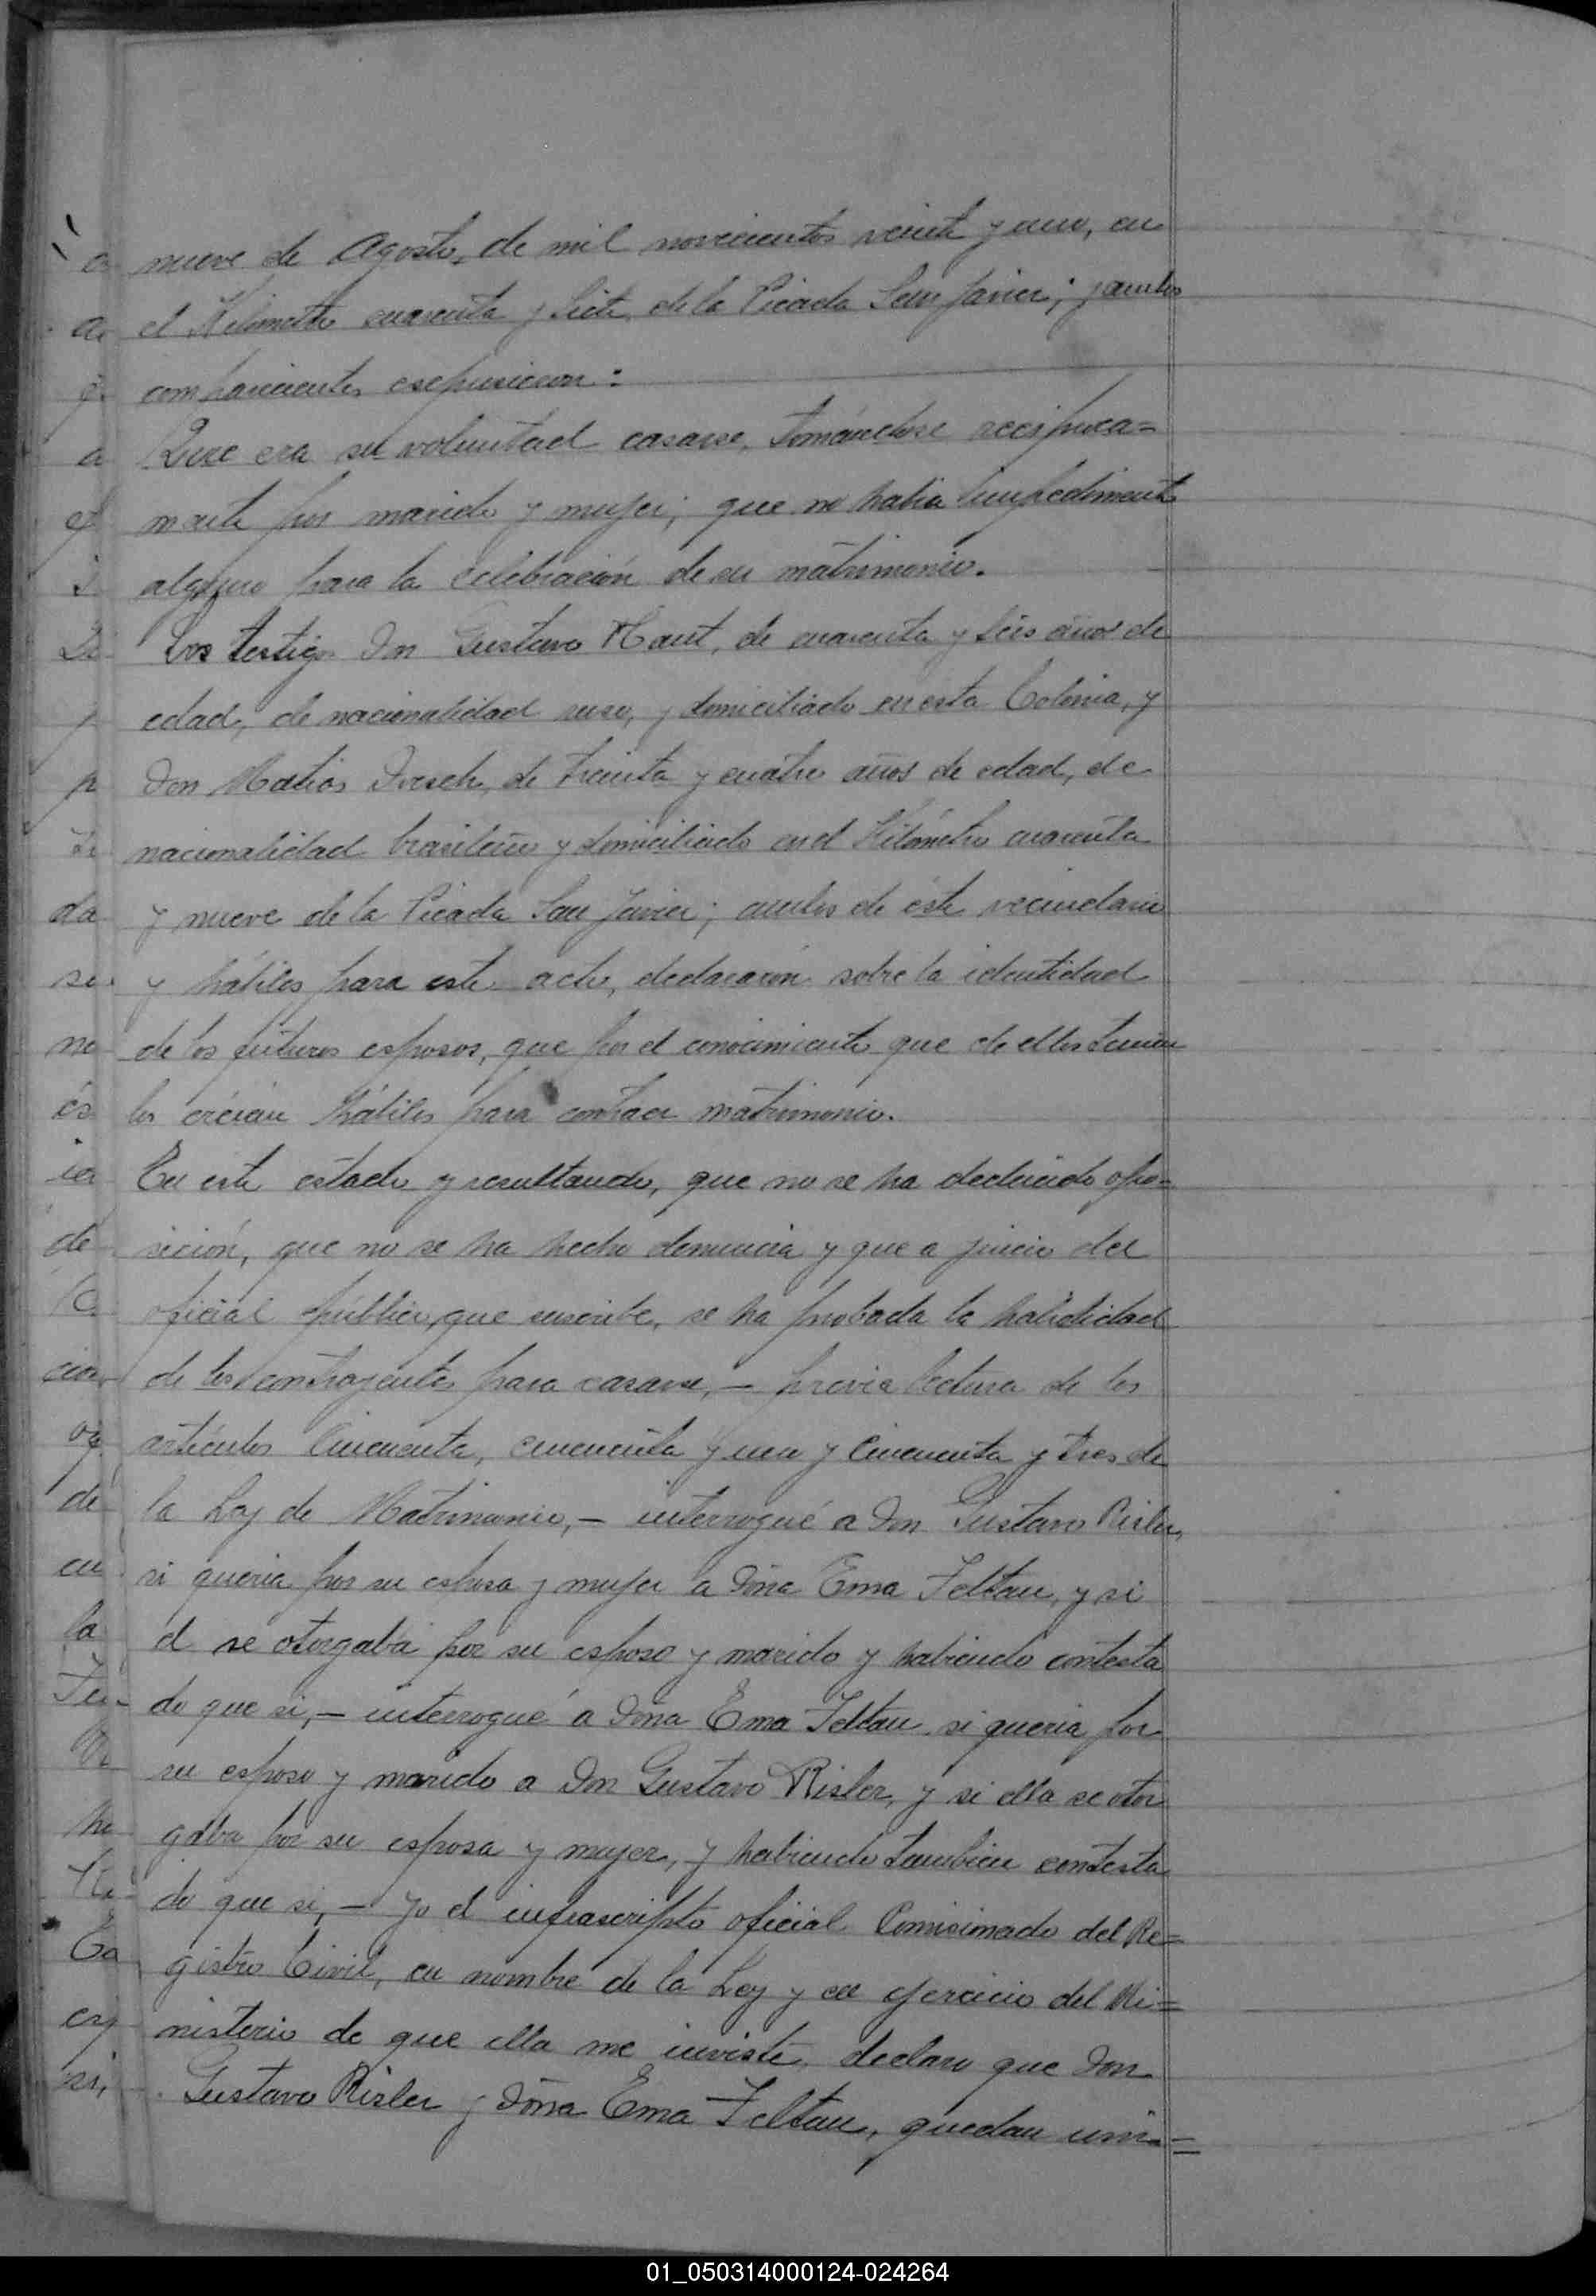 nueve de Agosto, de mil novecientos veinte y uno, en
el Kilometro cuarenta y siete, de la Picada San Javier; y ambos
comparecientes espusieron:
Que era su voluntad casarse, tomándose recíproca=
mente por marido y mujer; que no habia impedimento
alguno para la celebración de su matrimonio.
Los testigos Don Gustavo, de cuarenta y seis años de
edad, de nacionalidad ruso, y domiciliado en esta Colonia, y
Don Matias, de treinta y cuatro años de edad, de
nacionalidad brasilero y domiciliado en el Kilómetro cuarenta
y nueve de la Picada San Javier; ambos de éste vecindario
y hábiles para este acto, declararon sobre la identidad
de los futuros esposos, que por el conocimiento que de ellos tenian
los créeian hábiles para contraer matrimonio.
En este estado y resultando, que no se ha deducido opo=
sición, que no se ha hecho denuncia y que a juicio del
oficial público, que suscribe, se ha probada la habilidad
de los contrayentes para casarse, — previa lectura de los
artículos Cincuenta, cincuenta y uno y Cincuenta y tres de
la Ley de Matrimonio, — interrogué a Don Gustavo Risler,
si queria por su esposa y mujer a Doña Ema Feltau, y si
él se otorgaba por su esposo y marido y habiendo contesta
do que si, — interrogué a Doña Ema Feltau si queria por
su esposo y marido a Don Gustavo Risler, y si ella se otor
gaba por su esposa y mujer, y habiendo tambien contesta
do que si, — Yo el infrascripto oficial Comisionado del Re=
gistro Civil, en nombre de la Ley y en ejercicio del Mi=
nisterio de que ella me inviste, declaro que Don
Gustavo Risler y Doña Ema Feltau, quedan uni=
01_050314000124-024264